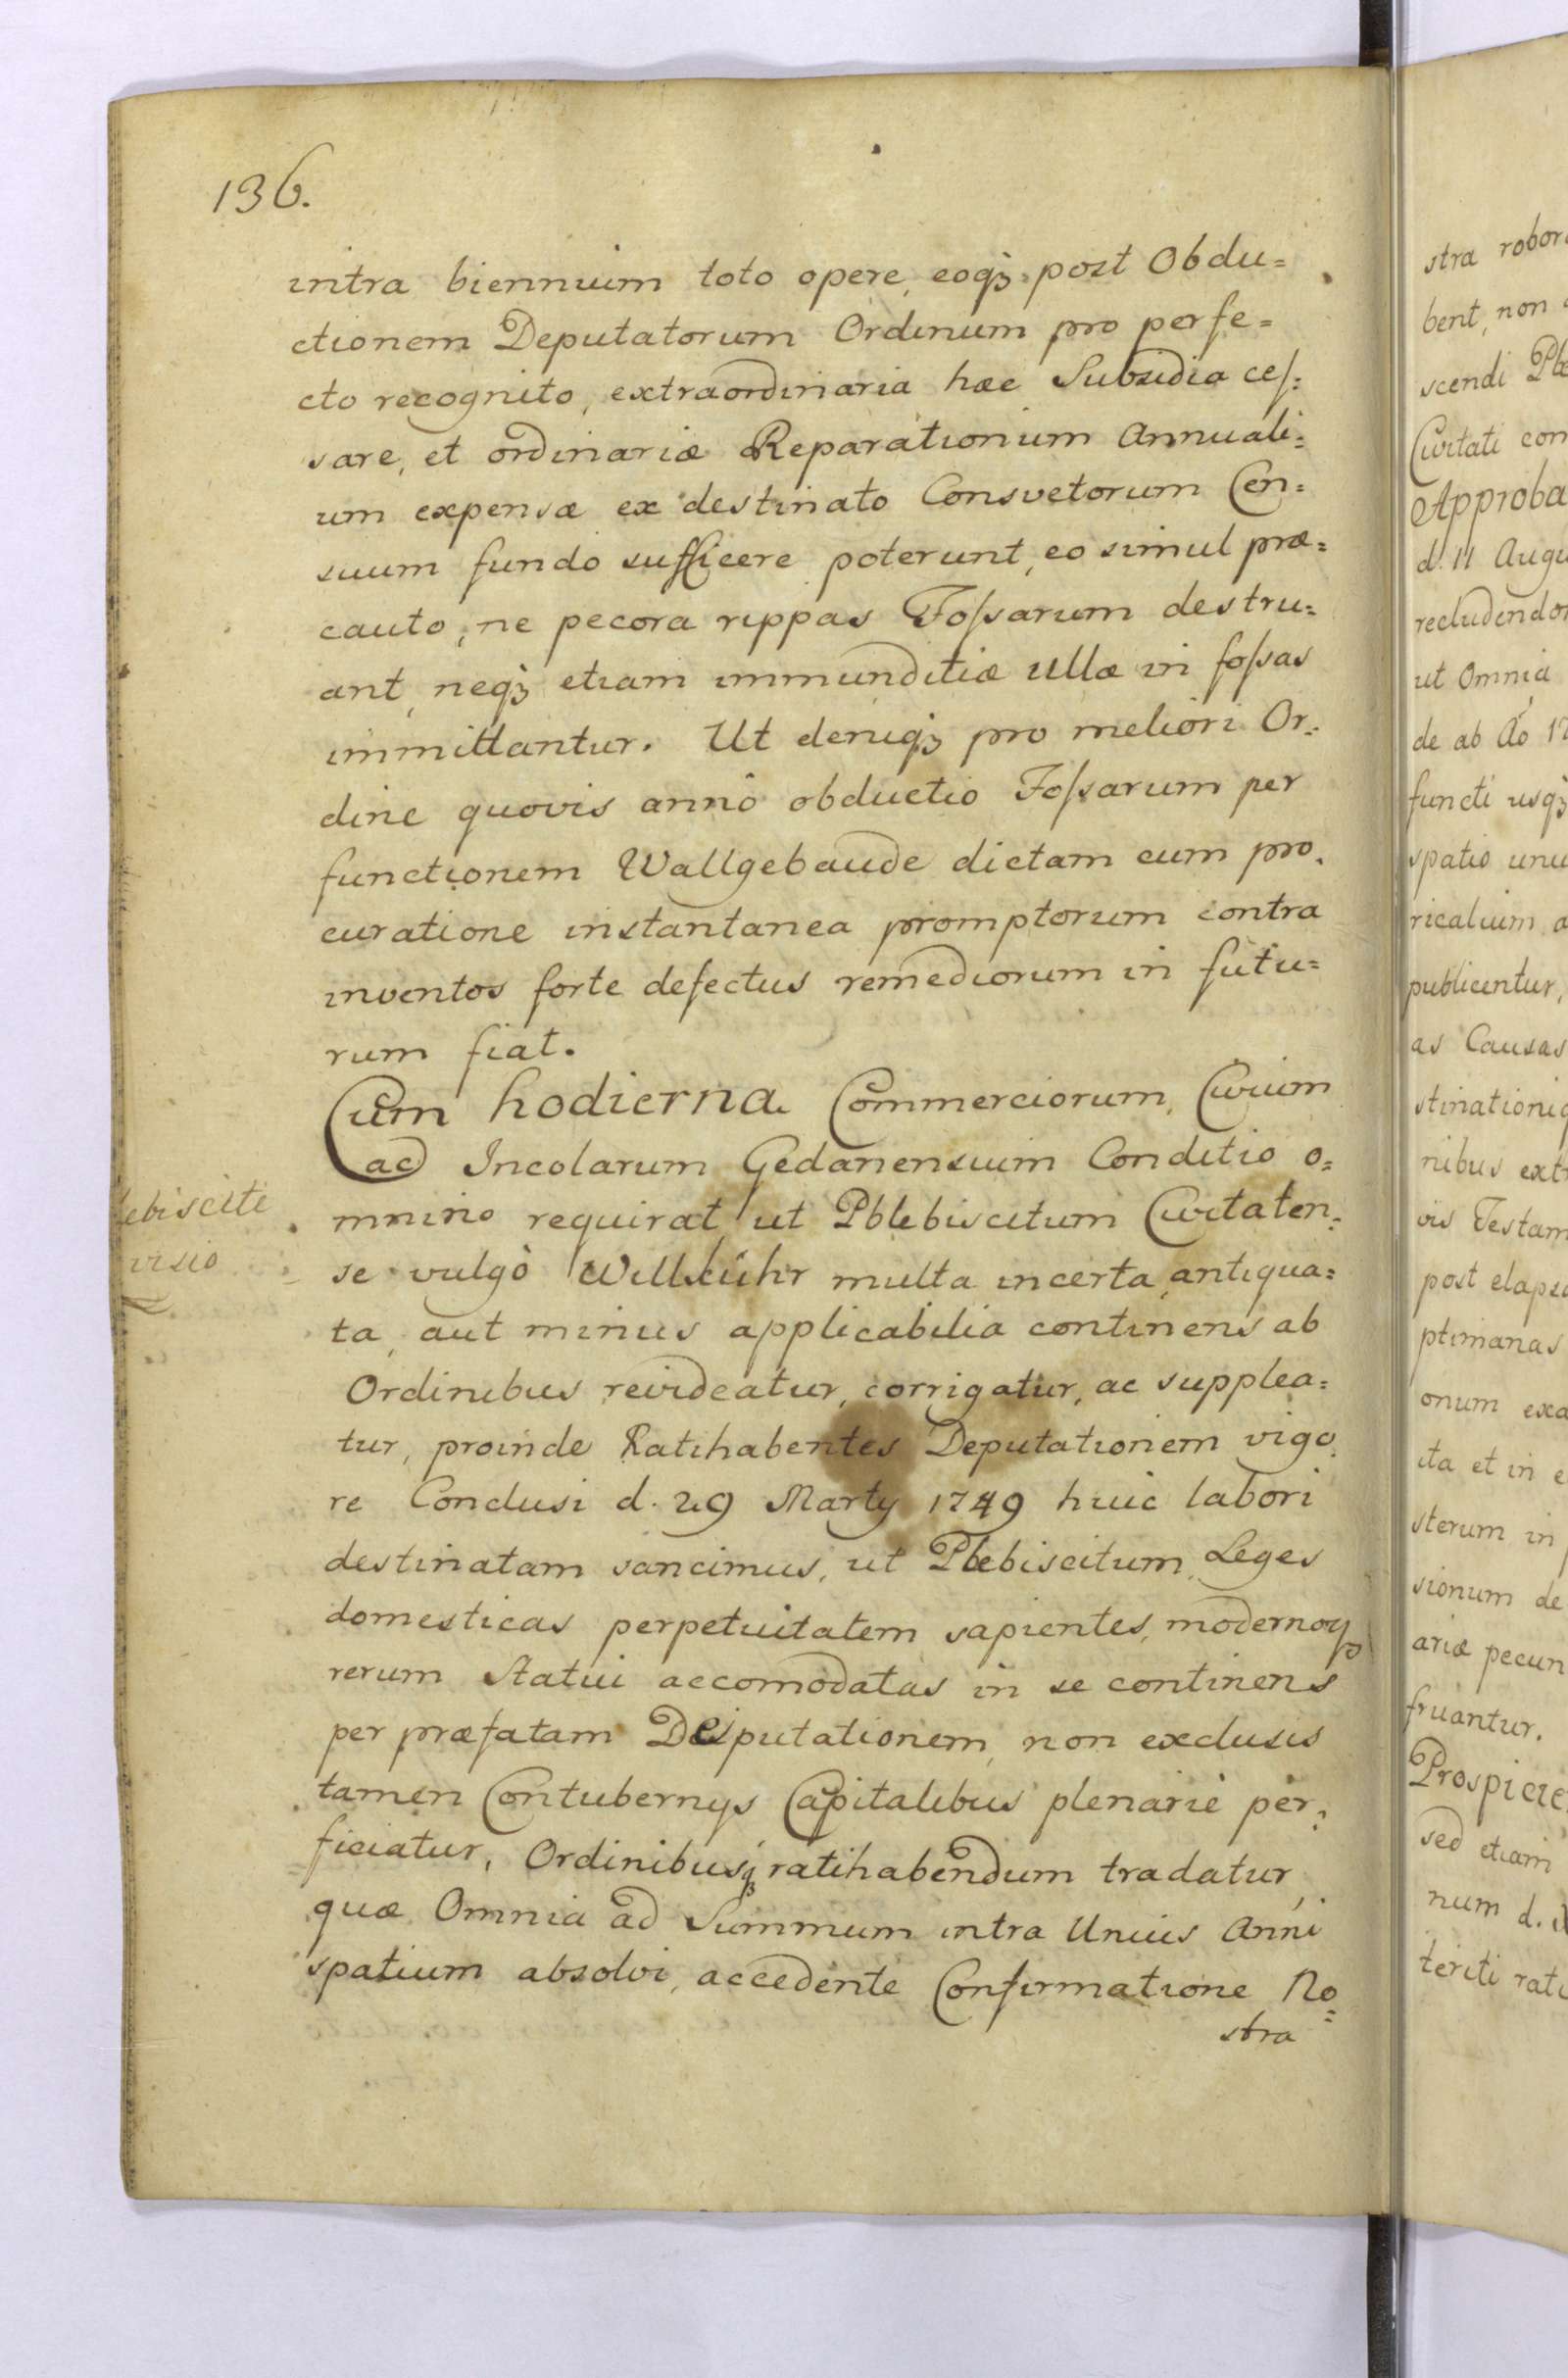 136.
intra biennium toto opere, eoqꝫ post Obdu=
ctionem Deputatorum Ordinum pro perfe=
cto recognito, extraordinaria hæc Subsidia ces=
sare, et ordinariæ Reparationum Annuali=
um expensæ ex destinato Consvetorum Cen=
suum fundo sufficere poterunt, eo simul præ=
cauto, ne pecora rippas Fossarum destru=
ant, neqꝫ etiam immunditiæ ullæ in fossas
immittantur. Ut deniqꝫ pro meliori Or=
dine quovis annô obductio Fossarum per
functionem Wallgebaude dictam cum pro=
curatione instantanea promptorum contra
inventos forte defectus remediorum in futu=
rum fiat.
Cum hodierna Commerciorum, Civium
ac Incolarum Gedanensium Conditio o=
mnino requirat, ut Pblebiscitum Civitaten=
se vulgò Willkühr multa incerta, antiqua=
ta, aut minus applicabilia continens ab
Ordinibus revideatur, corrigatur, ac supplea=
tur, proinde Ratihabentes Deputationem vigo=
re Conclusi d. 29 Martÿ 1749 huic labori
destinatam sancimus, ut Plebiscitum, Leges
domesticas perpetuitatem sapientes, modernoqꝫ
rerum Statui accomodatas in se continens
per præfatam Deputationem, non exclusis
tamen Contubernijs Capitalibus plenariè per=
ficiatur, Ordinibusqꝫ ratihabendum tradatur,
quæ Omnia ad Summum intra Unius Anni
spatium absolvi, accedente Confirmatione No=
stra
lebisciti
visio
stra robor
bent, non
scendi Ple
Civitati con
Approba
d. 11 Augu
recludendor
ut Omnia
de ab Aô 17
functi usqꝫ
spatio unu
ricalium a
publicentur,
as Causas
stinationiq
nibus ext
vis Testam
post elaps
ptimanas
onum exa
ita et in e
sterum in
sionum de
ariæ pecun
fruantur.
Prospicie
sed etiam
num d.
teriti rati